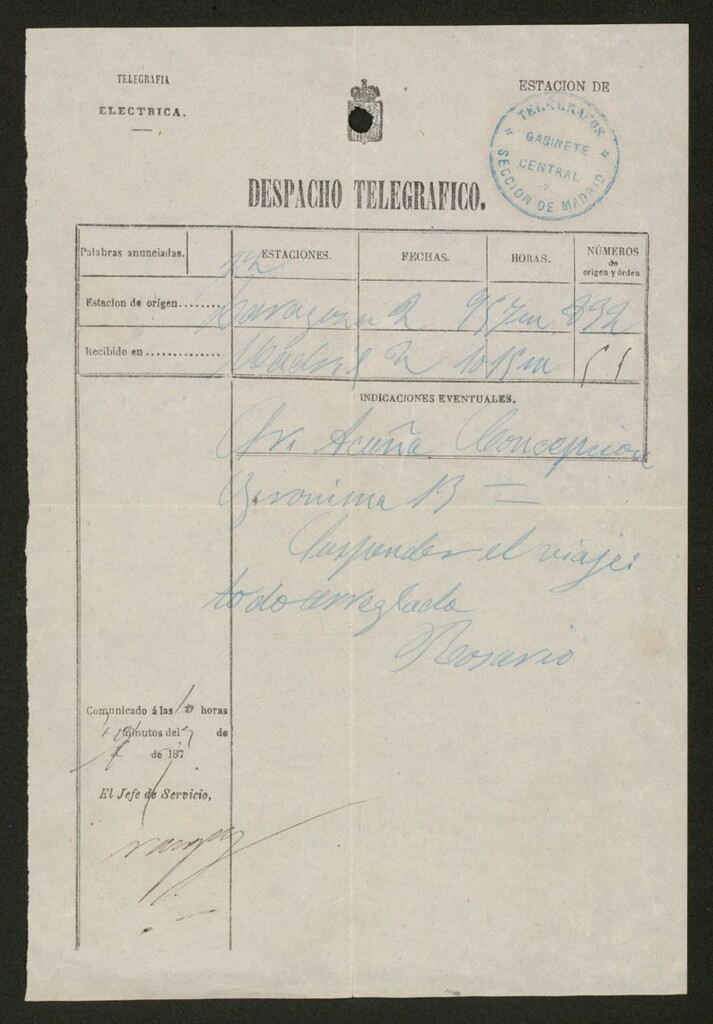 TELEGRAFIA
ELECTRICA.
ESTACION DE
TELEGRAFOS
GABINETE
CENTRAL
SECCION DE MADRID
DESPACHO TELEGRAFICO.
Palabras anunciadas.
12
ESTACIONES.
FECHAS.
HORAS.
NÚMEROS
de
origen y órden
Estacion de orígen........
Zaragoza 2 9 57 m 832
Recibido en ..............
Madrid 2 10 15 m
INDICACIONES EVENTUALES.
Sr. Acuña Concepcion
Geronima 13 =
Suspender el viaje:
todo arreglado
Rosario
Comunicado á las 10 horas
minutos del 2 de
de 187
El Jefe de Servicio,